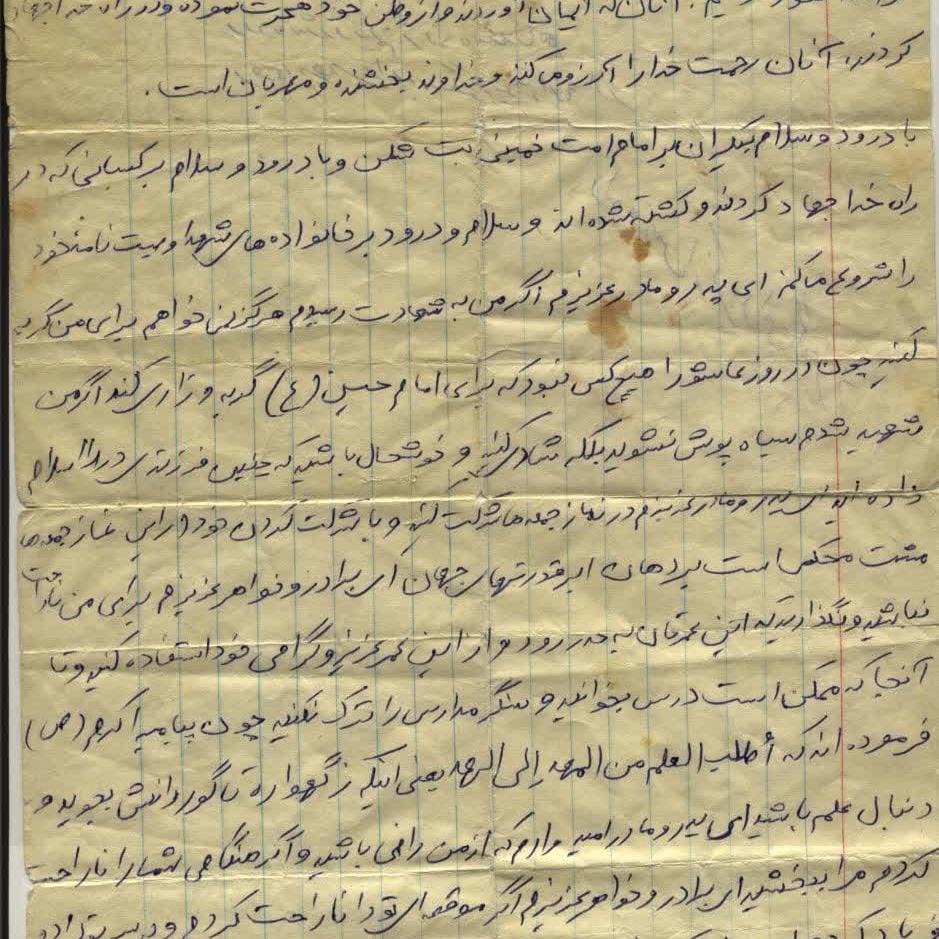 آنان که ایمان آوردند و از وطن خود هجرت نموده و در راه خدا جهاد
کردند، آنان رحمت خدا را آرزو میکنند و خداوند بخشنده و مهربان است.
با درود و سلام بیکران بر امام امت خمینی بت شکن و با درود و سلام بر کسانی که در
راه خدا جهاد کردند و کشته شده اند و سلام و درود بر خانواده های شهدا وصیت نامه خود
را شروع میکنم ای پدر و مادر عزیزم اگر من به شهادت رسیدم هرگز نمی خواهم برای من گریه
کنید چون در روز عاشورا هیچ کس نبود که برای امام حسین (ع) گریه و زاری کند اگر من
شهید شدم سیاه پوش نشوید بلکه شادی کنید و خوشحال باشید که چنین فرزندی در راه اسلام
داده اید ای پدر و مادر عزیزم در نماز جمعه ها شرکت کنید و با شرکت کردن خود در این نماز جمعه ها
مشت محکمی است بر دهان ابرقدرتهای جهان ای برادر و خواهر عزیزم برای من ناراحت
نباشید و نگذارید که این عمرتان به هدر رود و از این عمر عزیز و گرامی خود استفاده کنید و تا
آنجا که ممکن است درس بخوانید و سنگر مدارس را ترک نکنید چون پیامبر اکرم (ص)
فرموده اند که أطلب العلم من المهد إلی الحد یعنی اینکه ز گهواره تا گور دانش بجوید و
دنبال علم باشید ای پدر و مادر امید وارم که از من راضی باشید و اگر هنگامی شما را ناراحت
کردم مرا ببخشید ای برادر و خواهر عزیزم اگر موقعی تو را ناراحت کردم و